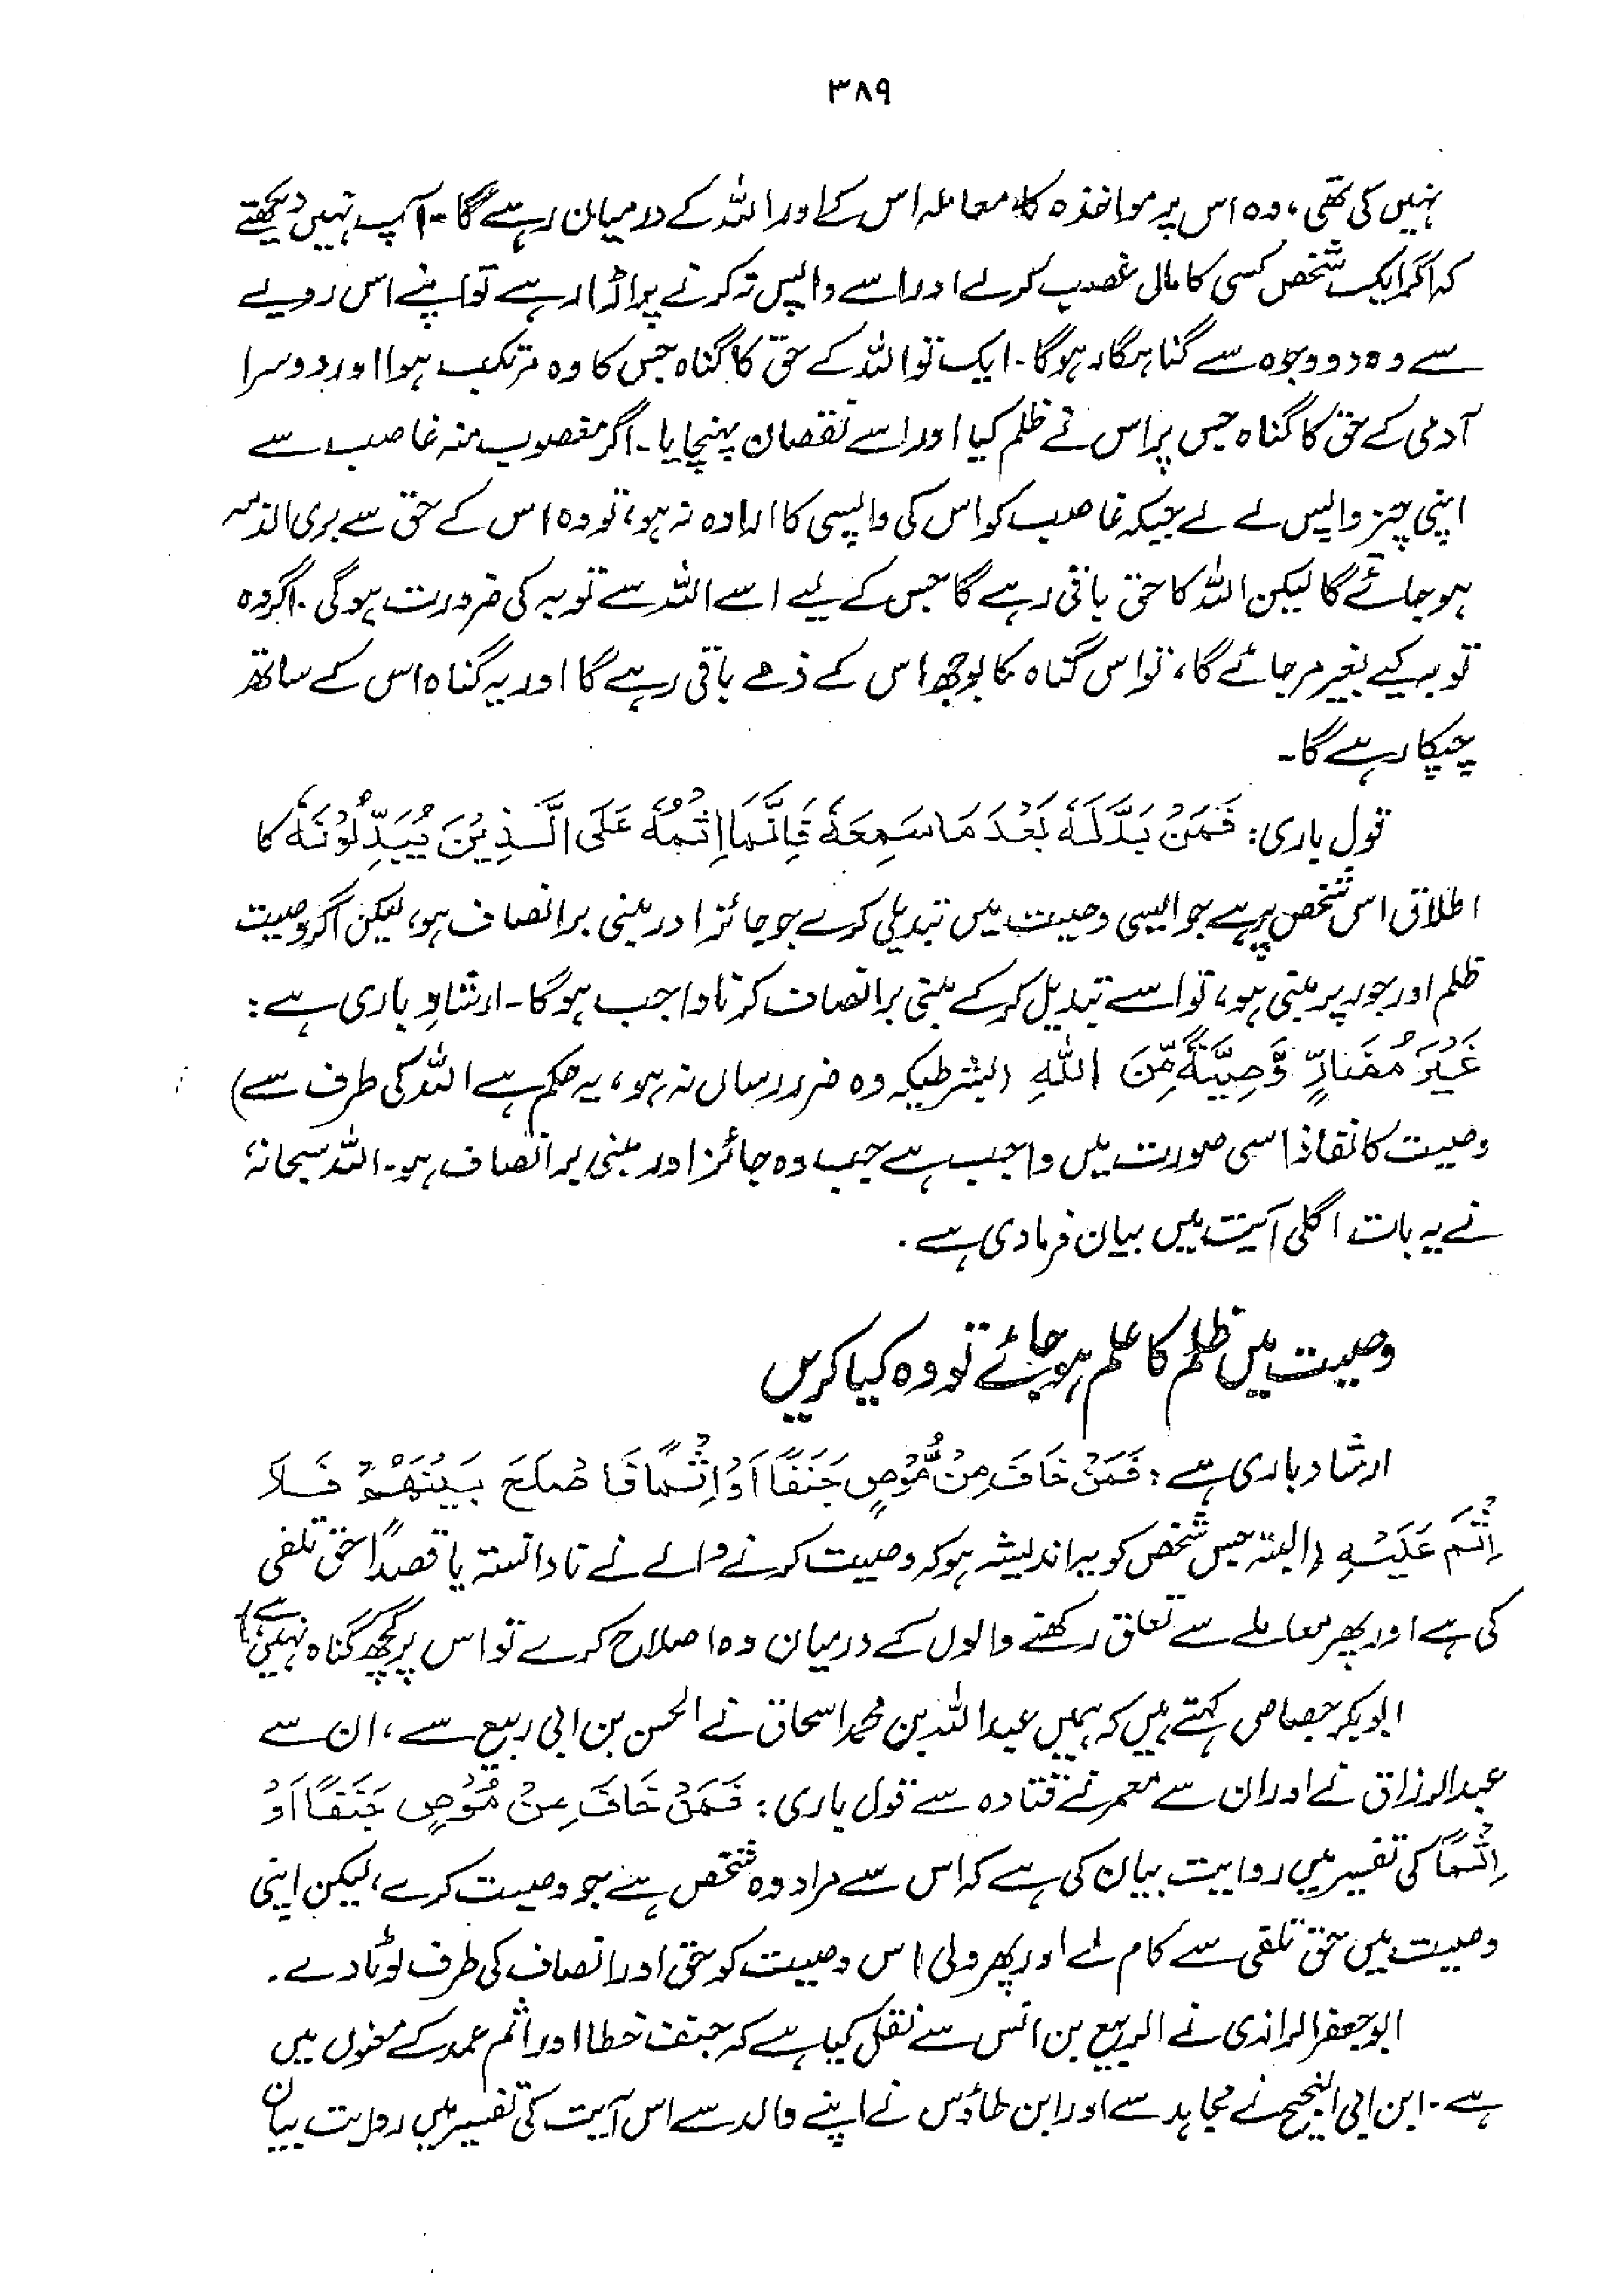 ۳۸۹
نہیں کی تھی، وہ اس پر مواخذہ کا معاملہ اس کے اور اللہ کے درمیان رہے گا۔ آپ نہیں دیکھتے
کہ اگر ایک شخص کسی کا مال غصب کرلے اور اسے واپس نہ کرنے پر اڑا رہے تو اپنے اس رویے
سے وہ دو وجوہ سے گناہگار ہوگا۔ ایک تو اللہ کے حق کا گناہ جس کا وہ مرتکب ہوا اور دوسرا
آدمی کے حق کا گناہ جس پر اس نے ظلم کیا اور اسے نقصان پہنچایا۔ اگر مغصوب منہ غاصب سے
اپنی چیز واپس لے لے جبکہ غاصب کو اس کی واپسی کا ارادہ نہ ہو، تو وہ اس کے حق سے بری الذمہ
ہو جائے گا لیکن اللہ کا حق باقی رہے گا جس کے لیے اسے اللہ سے توبہ کی ضرورت ہوگی۔ اگر وہ
توبہ کیے بغیر مرجائے گا، تو اس گناہ کا بوجھ اس کے ذمے باقی رہے گا اور یہ گناہ اس کے ساتھ
چپکا رہے گا۔
قول باری: فَمَنْ بَدَّلَهٗ بَعْدَ مَا سَمِعَهٗ فَاِنَّمَا اِثْمُهٗ عَلَى الَّذِيْنَ يُبَدِّلُوْنَهٗ کا
اطلاق اس شخص پر ہے جو ایسی وصیت میں تبدیلی کرے جو جائز اور مبنی برانصاف ہو، لیکن اگر وصیت
ظلم اور جور پر مبنی ہو، تو اسے تبدیل کرکے مبنی برانصاف کرنا واجب ہوگا۔ ارشادِ باری ہے:
غَيْرَ مُضَارٍّ وَّصِيَّةً مِّنَ اللّٰهِ (بشرطیکہ وہ ضرر رساں نہ ہو، یہ حکم ہے اللہ کی طرف سے)
وصیت کا نفاذ اسی صورت میں واجب ہے جب وہ جائز اور مبنی برانصاف ہو۔ اللہ سبحانہٗ
نے یہ بات اگلی آیت میں بیان فرمادی ہے۔
وصیت میں ظلم کا علم ہو جائے تو وہ کیا کریں
ارشاد باری ہے: فَمَنْ خَافَ مِنْ مُّوْصٍ جَنَفًا اَوْ اِثْمًا فَاَصْلَحَ بَيْنَهُمْ فَلَا
اِثْمَ عَلَيْهِ (البتہ جس شخص کو یہ اندیشہ ہو کہ وصیت کرنے والے نے نادانستہ یا قصداً حق تلفی
کی ہے اور پھر معاملے سے تعلق رکھنے والوں کے درمیان وہ اصلاح کرے تو اس پر کچھ گناہ نہیں ہے)
ابوبکر جصاص کہتے ہیں کہ ہمیں عبداللہ بن محمد اسحاق نے الحسن بن ابی ربیع سے، ان سے
عبدالرزاق نے اور ان سے معمر نے قتادہ سے قول باری: فَمَنْ خَافَ مِنْ مُّوْصٍ جَنَفًا اَوْ
اِثْمًا کی تفسیر میں روایت بیان کی ہے کہ اس سے مراد وہ شخص ہے جو وصیت کرے، لیکن اپنی
وصیت میں حق تلفی سے کام لے اور پھر ولی اس وصیت کو حق اور انصاف کی طرف لوٹا دے۔
ابو جعفر الرازی نے الربیع بن انس سے نقل کیا ہے کہ جنف خطا اور اثم عمد کے معنوں میں
ہے۔ ابن ابی النجیح نے مجاہد سے اور ابن طاؤس نے اپنے والد سے اس آیت کی تفسیر میں روایت بیان